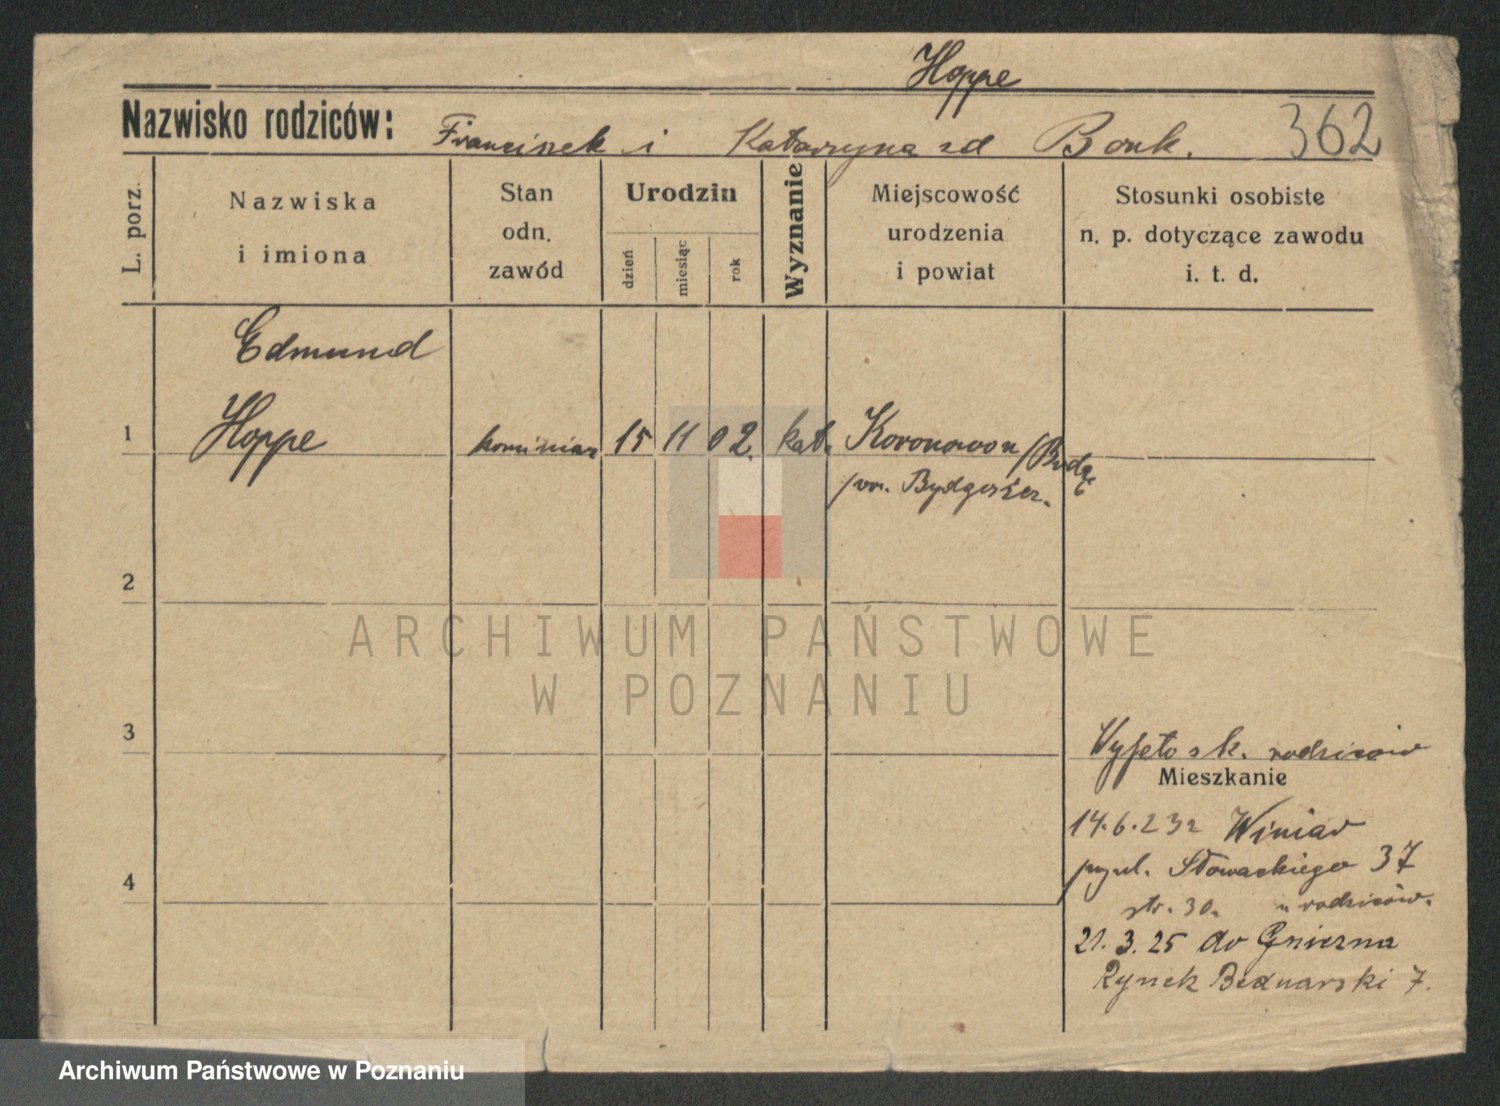 Hoppe
Nazwisko rodziców: Franciszek i Katarzyna zd Bonk. 362
L. porz.
Nazwiska
i imiona
Stan
odn.
zawód
Urodzin
dzień
miesiąc
rok
Wyznanie
Miejscowość
urodzenia
i powiat
Stosunki osobiste
n. p. dotyczące zawodu
i. t. d.
Edmund
1 Hoppe kominiarz 15 11 02. kat. Koronowo
2
ARCHIWUM PAŃSTWOWE
W POZNANIU
3
Wyjęto z k. rodziców
Mieszkanie
14.6.23 Winiar
Słowackiego 37
4
str. 30. u rodziców.
21.3.25 do Gniezna
Rynek Bednarski 7.
Archiwum Państwowe w Poznaniu